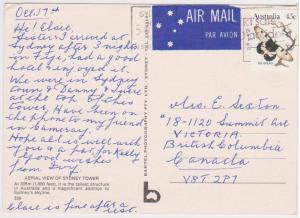 Oct. 17th
Hi! Elsie,
Sister & I arrived at
Sydney after 3 nights
in Fiji, had a good
hotel & enjoyed it.
We were in Sydney
town & Danny & Julie
at the top of this
tower. Have been on
the phone to my friend
in Cameray.
Hope all is well with
you for a par for Kelly
good wishes
from Daisy
AERIAL VIEW OF SYDNEY TOWER
At 305m (1,000 feet), it is the tallest structure
in Australia and a magnificent addition to
Sydney's skyline.
Clare is fine after a
rest.
BARTEL PHOTOGRAPHY PTY. LTD.
AIR MAIL
PAR AVION
Australia 45c
Mrs. E. Sexton
#18-1120 Summit Ave
VICTORIA
British Columbia
Canada
V8T 2P7